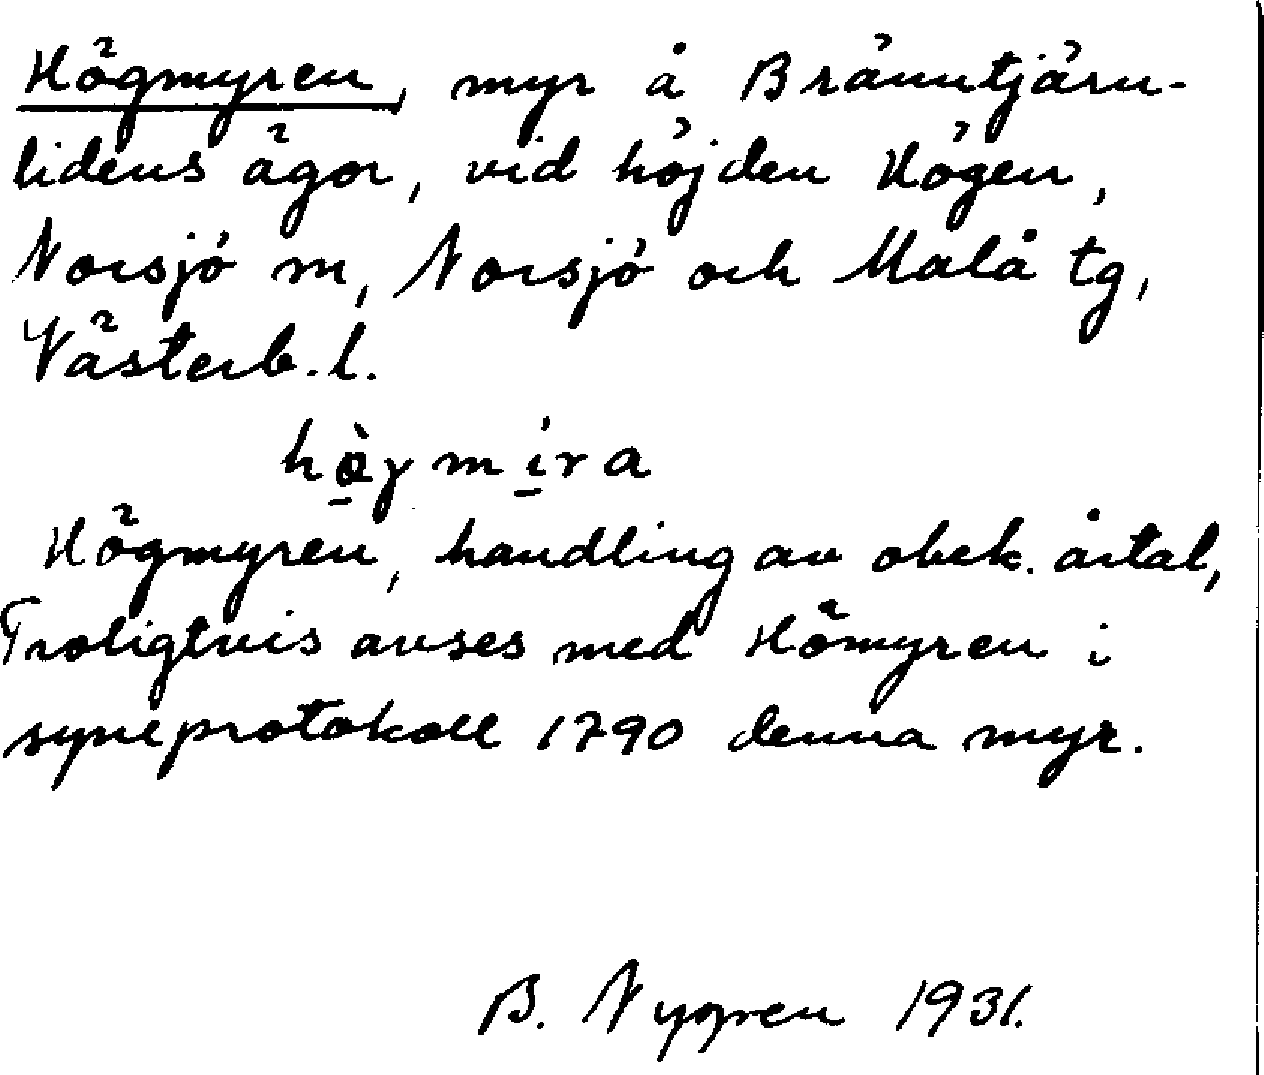 Högmyren, myr å Bränntjärn-
lidens ägor, vid höjden Högen,
Norsjö m, Norsjö och Malå tg,
Västerb. l.
hö̀ɣmíra
Högmyren, handling av obek. årtal,
Troligtvis avses med Hömyren i
syneprotokoll 1790 denna myr.
B. Nygren 1931.